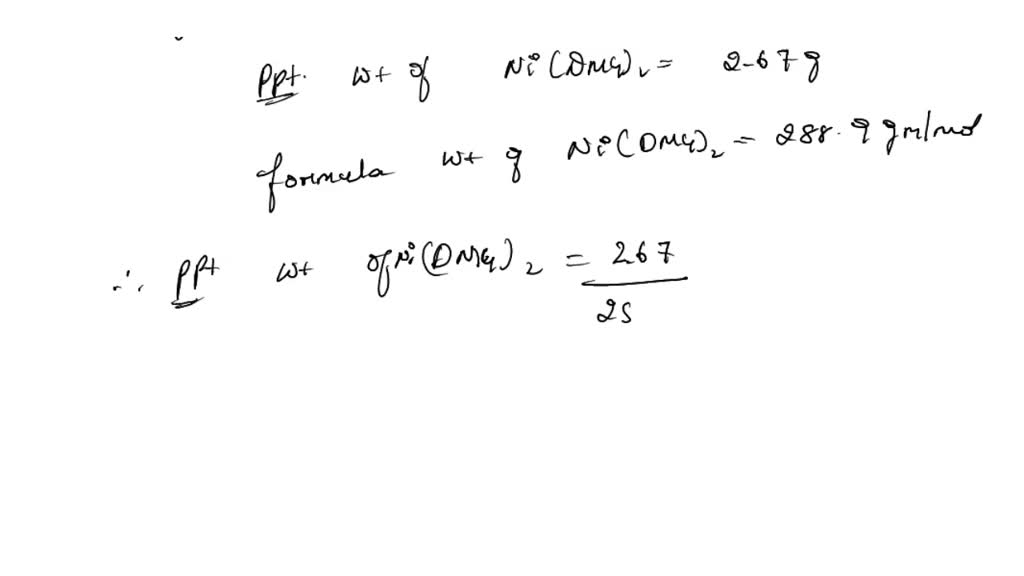 Ppt. wt of Ni(DMG)₂ = 2.67 g
formula wt of Ni(DMG)₂ = 288.9 gm/mol
∴ PPt wt of Ni(DMG)₂ = 267
25